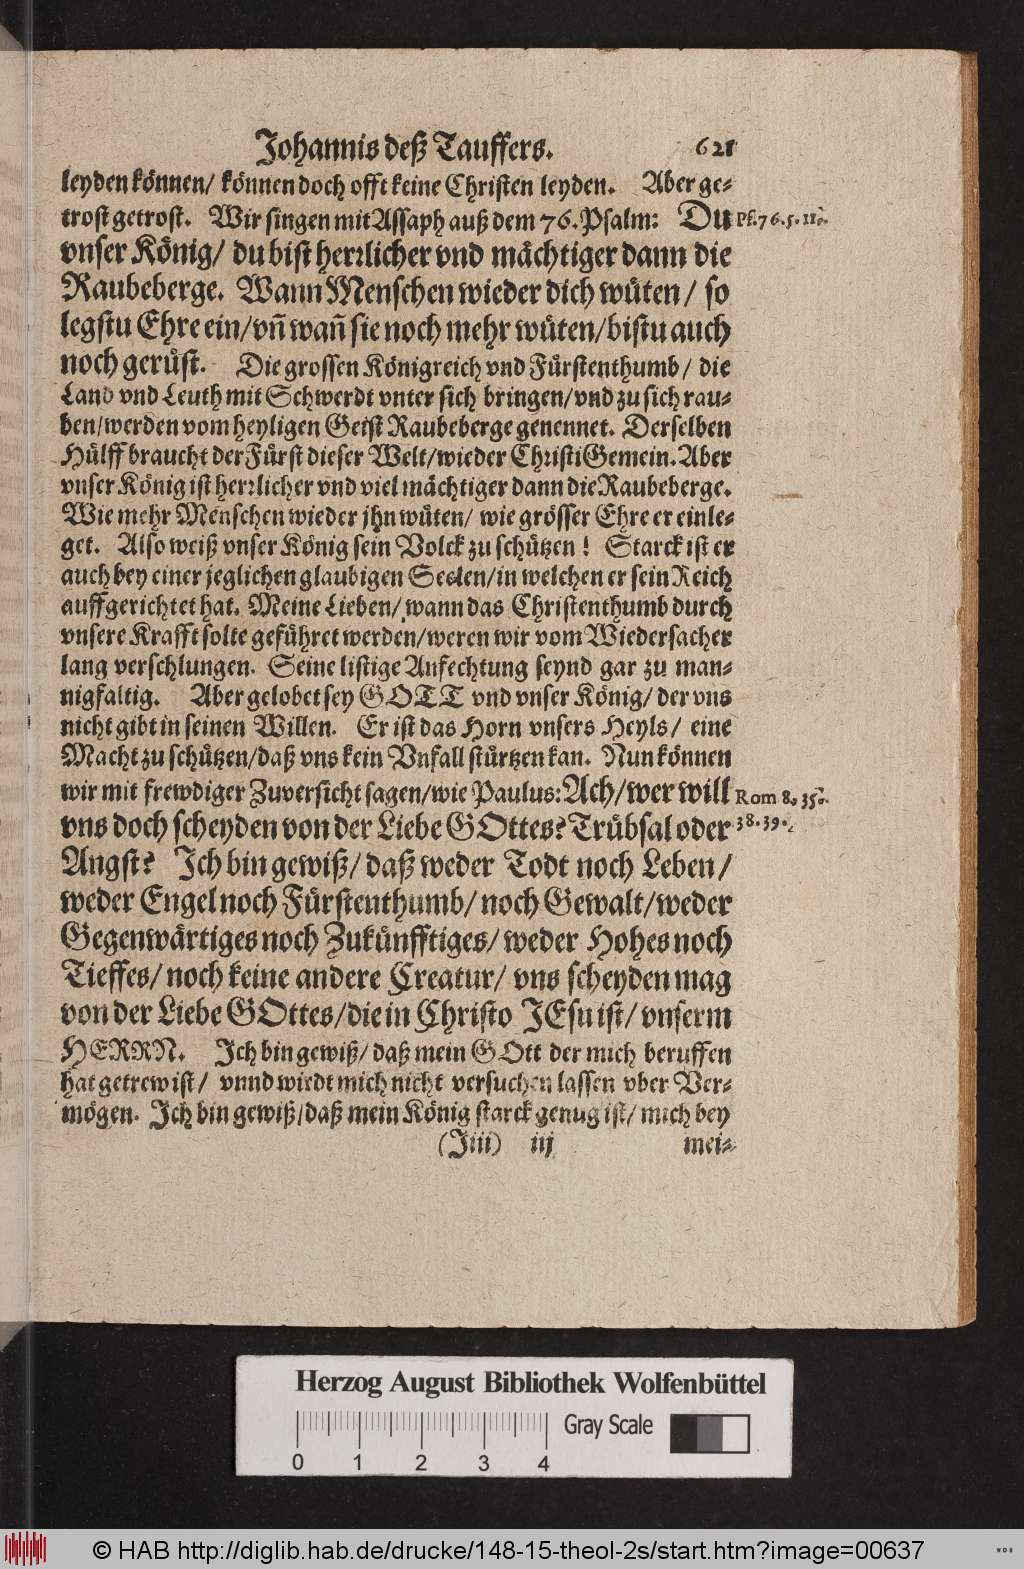 Johannis deß Tauffers. 621
leyden können/ können doch offt keine Christen leyden. Aber ge-
trost getrost. Wir singen mit Assaph auß dem 76. Psalm: Du Ps. 76. 5. 11.
vnser König/ du bist herꝛlicher vnd mächtiger dann die
Raubeberge. Wann Menschen wieder dich wüten/ so
legstu Ehre ein/ vn̄ wan̄ sie noch mehr wüten/ bistu auch
noch gerüst. Die grossen Königreich vnd Fürstenthumb/ die
Land vnd Leuth mit Schwerdt vnter sich bringen/ vnd zu sich rau-
ben/ werden vom heyligen Geist Raubeberge genennet. Derselben
Hülff braucht der Fürst dieser Welt/ wieder Christi Gemein. Aber
vnser König ist herꝛlicher vnd viel mächtiger dann die Raubeberge.
Wie mehr Menschen wieder jhn wüten/ wie grösser Ehre er einle-
get. Also weiß vnser König sein Volck zu schützen! Starck ist er
auch bey einer jeglichen glaubigen Seelen/ in welchen er sein Reich
auffgerichtet hat. Meine Lieben/ wann das Christenthumb durch
vnsere Krafft solte geführet werden/ weren wir vom Wiedersacher
lang verschlungen. Seine listige Anfechtung seynd gar zu man-
nigfaltig. Aber gelobet sey GOTT vnd vnser König/ der vns
nicht gibt in seinen Willen. Er ist das Horn vnsers Heyls/ eine
Macht zu schützen/ daß vns kein Vnfall stürtzen kan. Nun können
wir mit frewdiger Zuversicht sagen/ wie Paulus: Ach/ wer will Rom 8. 35.
vns doch scheyden von der Liebe GOttes? Trübsal oder 38. 39.
Angst? Ich bin gewiß/ daß weder Todt noch Leben/
weder Engel noch Fürstenthumb/ noch Gewalt/ weder
Gegenwärtiges noch Zukünfftiges/ weder Hohes noch
Tieffes/ noch keine andere Creatur/ vns scheyden mag
von der Liebe GOttes/ die in Christo JEsu ist/ vnserm
HERRN. Ich bin gewiß/ daß mein GOtt der mich beruffen
hat getrew ist/ vnnd wirdt mich nicht versuchen lassen vber Ver-
mögen. Ich bin gewiß/ daß mein König starck genug ist/ mich bey
(Jiii) iij mei-
Herzog August Bibliothek Wolfenbüttel
Gray Scale
0 1 2 3 4
© HAB http://diglib.hab.de/drucke/148-15-theol-2s/start.htm?image=00637